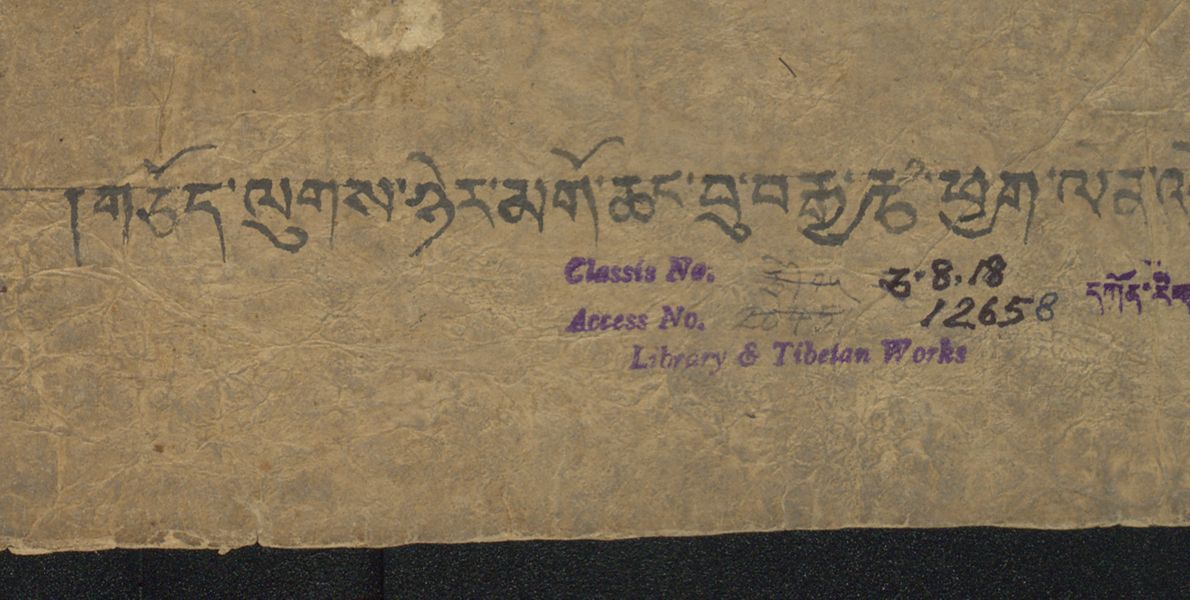 ། གཅོད་ལུགས་ཉེར་མགོ་ཆང་བུ་བརྒྱ་རྩ་ཕྱག་ལེན་
Classis No. ཅ.8.18
Access No. 12658
Library & Tibetan Works
དཀོན་